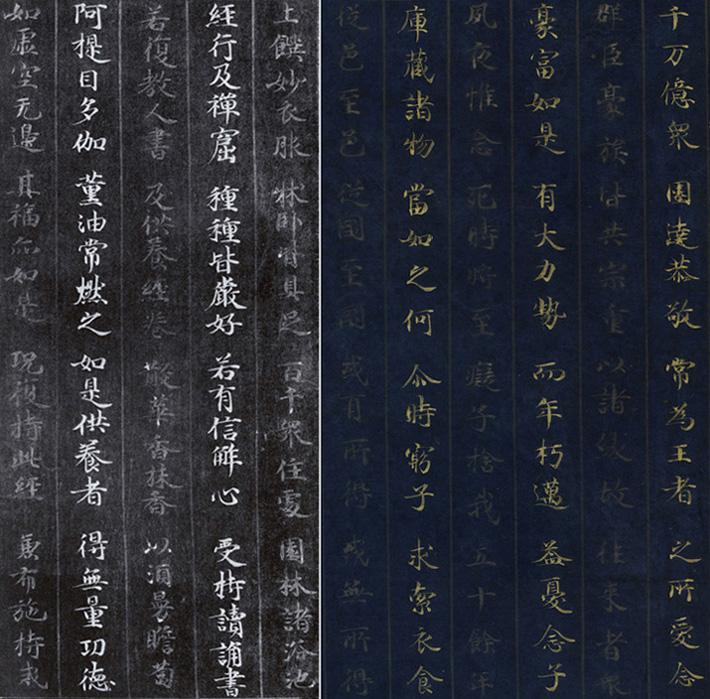 千万億衆 圍遶恭敬 常為王者 之所愛念
群臣豪族 皆共宗重 以諸緣故 往來者衆
豪富如是 有大力勢 而年朽邁 益憂念子
夙夜惟念 死時將至 癡子捨我 五十餘年
庫藏諸物 當如之何 尒時窮子 求索衣食
從邑至邑 從國至國 或有所得 或無所得
上饌妙衣服 牀卧皆具足 百千衆住處 園林諸浴池
經行及禪窟 種種皆嚴好 若有信觧心 受持讀誦書
若復教人書 及供養經卷 散華香抹香 以須曼瞻蔔
阿提目多伽 薫油常燃之 如是供養者 得無量功德
如虛空无邊 其福亦如是 況復持此經 兼布施持戒